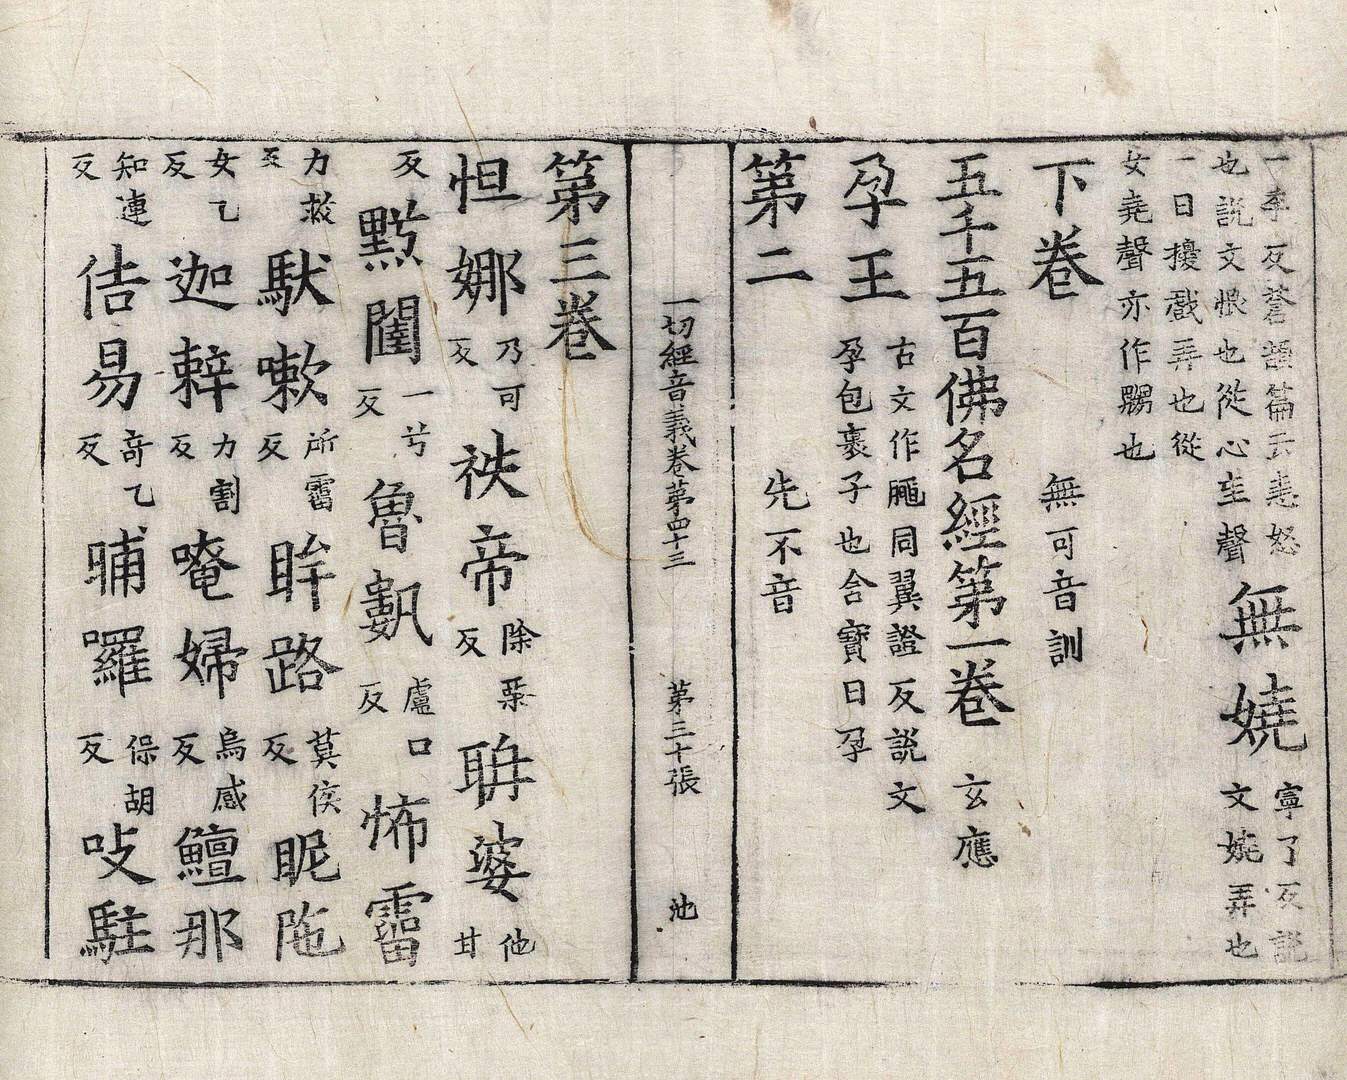 一季反蒼頡篇云恚怒
也説文恨也從心圭聲
無嬈
寧了反説
文嬈弄也
一曰擾戲弄也從
女堯聲亦作嬲也
下卷
無可音訓
五千五百佛名經第一卷
玄應
孕王
古文作𦝵同翼證反説文
孕包裹子也含實曰孕
第二
先不音
一切經音義卷第四十三
第三十張
池
第三卷
怛娜
乃可
反
袟帝
除栗
反
䎳婆
他
甘
反
黟闍
一兮
反
魯㔣
盧口
反
怖霤
力救
反
䭾嗽
所霤
反
眸路
莫侯
反
眤陁
女乙
反
迦𨐓
力割
反
唵婦
烏感
反
鱣那
知連
反
佶易
奇乙
反
哺囉
保胡
反
𠮙駐